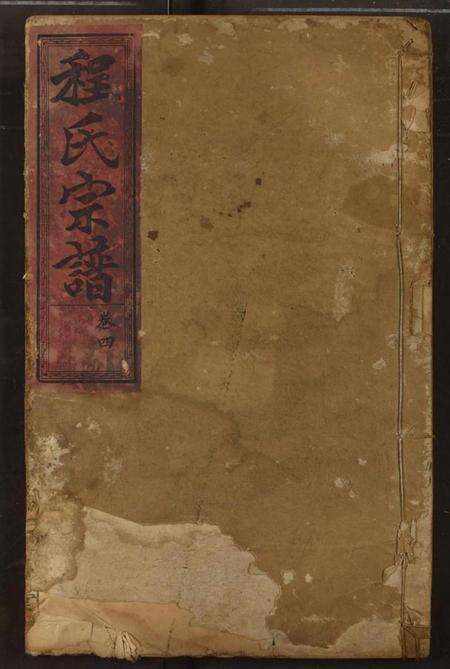 程氏宗譜
卷四